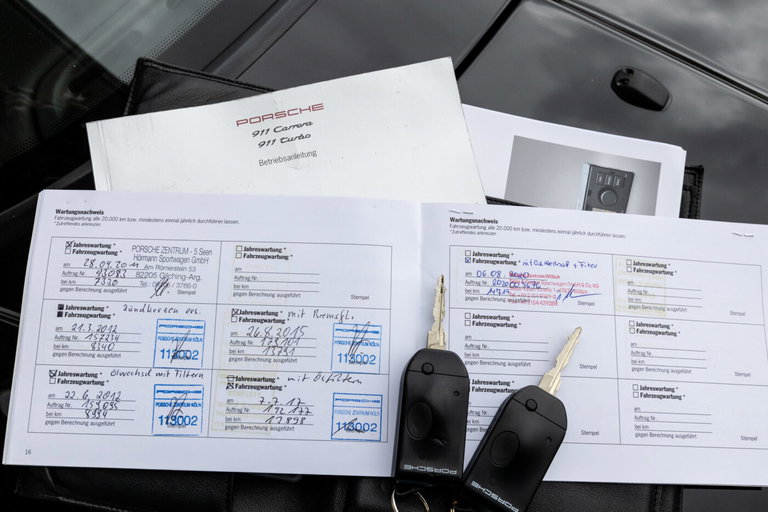 PORSCHE
911 Carrera
911 Turbo
Betriebsanleitung
Wartungsnachweis
Fahrzeugwartung alle 20.000 km bzw. mindestens einmal jährlich durchführen lassen.
*Zutreffendes ankreuzen
Jahreswartung *
Fahrzeugwartung *
am 28.04.2011
Auftrag Nr. 93083
bei km 7330
gegen Berechnung ausgeführt
PORSCHE ZENTRUM - 5 Seen
Hörmann Sportwagen GmbH
Am Römerstein 53
82205 Gilching-Arg.
Stempel
Jahreswartung *
Fahrzeugwartung *
am
Auftrag Nr.
bei km
gegen Berechnung ausgeführt
Stempel
Jahreswartung *
Fahrzeugwartung *
Zündkerzen ers.
am 21.3.2012
Auftrag Nr. 157214
bei km 8340
gegen Berechnung ausgeführt
PORSCHE
PORSCHE ZENTRUM KÖLN
113002
Jahreswartung *
Fahrzeugwartung *
mit Bremsfl.
am 26.8.2015
Auftrag Nr. 178101
bei km 13731
gegen Berechnung ausgeführt
PORSCHE
PORSCHE ZENTRUM KÖLN
113002
Jahreswartung *
Fahrzeugwartung *
Ölwechsel mit Filtern
am 22.6.2012
Auftrag Nr.
bei km 8994
gegen Berechnung ausgeführt
PORSCHE
PORSCHE ZENTRUM KÖLN
113002
Jahreswartung *
Fahrzeugwartung *
mit Ölfiltern
am 7.7.17
Auftrag Nr. 192177
bei km 17898
gegen Berechnung ausgeführt
PORSCHE
PORSCHE ZENTRUM KÖLN
113002
16
Wartungsnachweis
Fahrzeugwartung alle 20.000 km bzw. mindestens einmal jährlich durchführen lassen.
*Zutreffendes ankreuzen
Jahreswartung *
Fahrzeugwartung *
am 06.08.2020
Auftrag Nr.
bei km
gegen Berechnung ausgeführt
Stempel
Jahreswartung *
Fahrzeugwartung *
am
Auftrag Nr.
bei km
gegen Berechnung ausgeführt
Stempel
Jahreswartung *
Fahrzeugwartung *
am
Auftrag Nr.
bei km
gegen Berechnung ausgeführt
Stempel
Jahreswartung *
Fahrzeugwartung *
am
Auftrag Nr.
bei km
gegen Berechnung ausgeführt
Stempel
Jahreswartung *
Fahrzeugwartung *
Stempel
Jahreswartung *
Fahrzeugwartung *
am
Auftrag Nr.
bei km
gegen Berechnung ausgeführt
Stempel
PORSCHE
PORSCHE